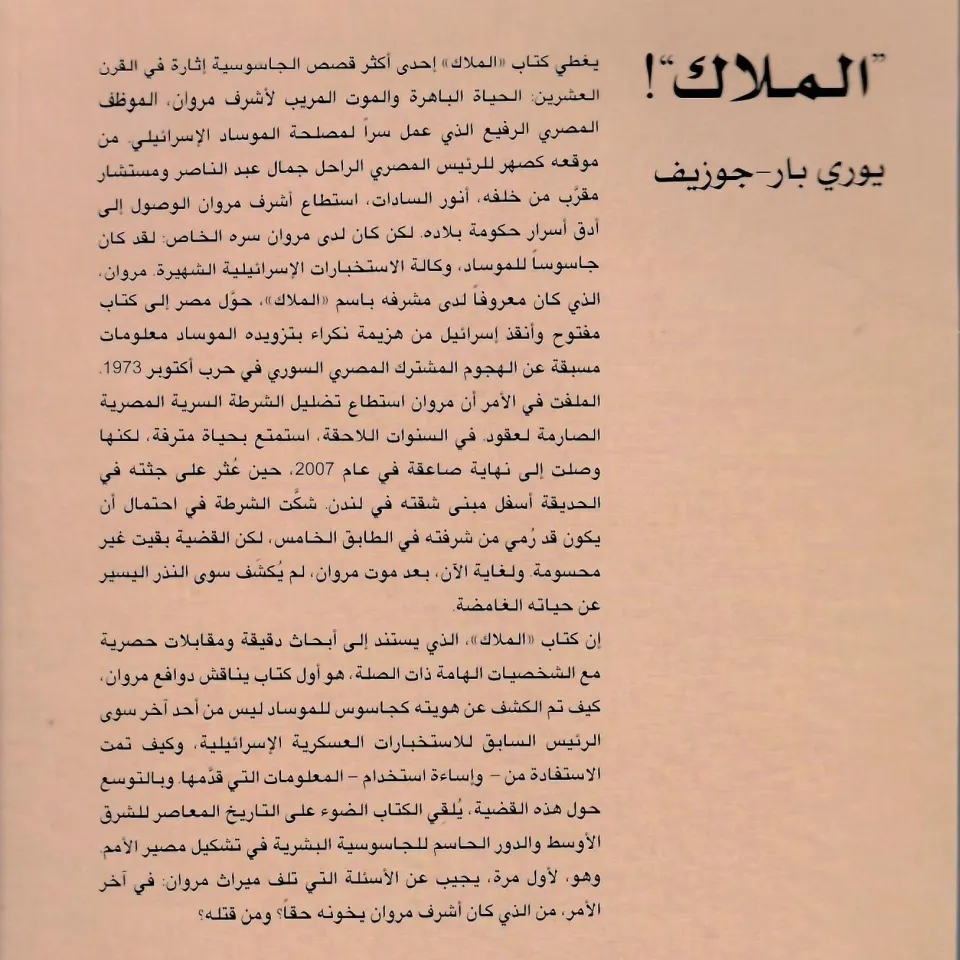 "الملاك"!
يوري بار-جوزيف
يغطي كتاب «الملاك» إحدى أكثر قصص الجاسوسية إثارة في القرن
العشرين: الحياة الباهرة والموت المريب لأشرف مروان، الموظف
المصري الرفيع الذي عمل سراً لمصلحة الموساد الإسرائيلي. من
موقعه كصهر للرئيس المصري الراحل جمال عبد الناصر ومستشار
مقرَّب من خلفه، أنور السادات، استطاع أشرف مروان الوصول إلى
أدق أسرار حكومة بلاده. لكن كان لدى مروان سره الخاص: لقد كان
جاسوساً للموساد، وكالة الاستخبارات الإسرائيلية الشهيرة. مروان،
الذي كان معروفاً لدى مشرفه باسم «الملاك»، حوَّل مصر إلى كتاب
مفتوح وأنقذ إسرائيل من هزيمة نكراء بتزويده الموساد معلومات
مسبقة عن الهجوم المشترك المصري السوري في حرب أكتوبر 1973.
الملفت في الأمر أن مروان استطاع تضليل الشرطة السرية المصرية
الصارمة لعقود. في السنوات اللاحقة، استمتع بحياة مترفة، لكنها
وصلت إلى نهاية صاعقة في عام 2007، حين عُثر على جثته في
الحديقة أسفل مبنى شقته في لندن. شكَّت الشرطة في احتمال أن
يكون قد رُمي من شرفته في الطابق الخامس، لكن القضية بقيت غير
محسومة. ولغاية الآن، بعد موت مروان، لم يُكشَف سوى النذر اليسير
عن حياته الغامضة.
إن كتاب «الملاك»، الذي يستند إلى أبحاث دقيقة ومقابلات حصرية
مع الشخصيات الهامة ذات الصلة، هو أول كتاب يناقش دوافع مروان،
كيف تم الكشف عن هويته كجاسوس للموساد ليس من أحد آخر سوى
الرئيس السابق للاستخبارات العسكرية الإسرائيلية، وكيف تمت
الاستفادة من – وإساءة استخدام – المعلومات التي قدَّمها. وبالتوسع
حول هذه القضية، يُلقي الكتاب الضوء على التاريخ المعاصر للشرق
الأوسط والدور الحاسم للجاسوسية البشرية في تشكيل مصير الأمم.
وهو، لأول مرة، يجيب عن الأسئلة التي تلف ميراث مروان: في آخر
الأمر، من الذي كان أشرف مروان يخونه حقاً؟ ومن قتله؟